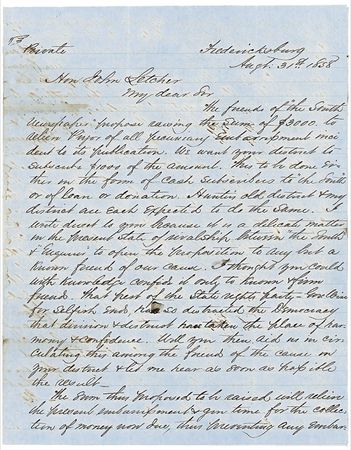 Private
Fredericksburg
Augt. 31st 1858
Hon John Letcher
My dear Sir
The friends of the South
newspaper propose raising the sum of $3000. to
relieve Pryor of all pecuniary embarrassment inci
dent to its publication. We want your district to
subscribe $1000 of the amount. This to be done ei
ther in the form of cash subscribers to the South
or of loan or donation. Hunter's old district & my
district are each expected to do the same. I
write direct to you because it is a delicate matter
in the present state of rivalship between the South
& Enquirer to open the proposition to any but a
known friend of our cause. I thought you could
with knowledge confide it only to known & firm
friends. That pest of the State rights party
for selfish ends has so distracted the Democracy
that division & distrust has taken the place of har
mony & confidence. Will you then aid us in cir
culating this among the friends of the cause in
your district & let me hear as soon as possible
the result
The sum thus proposed to be raised will relieve
the present embarrassment & give time for the collec
tion of money now due, thus preventing any embar